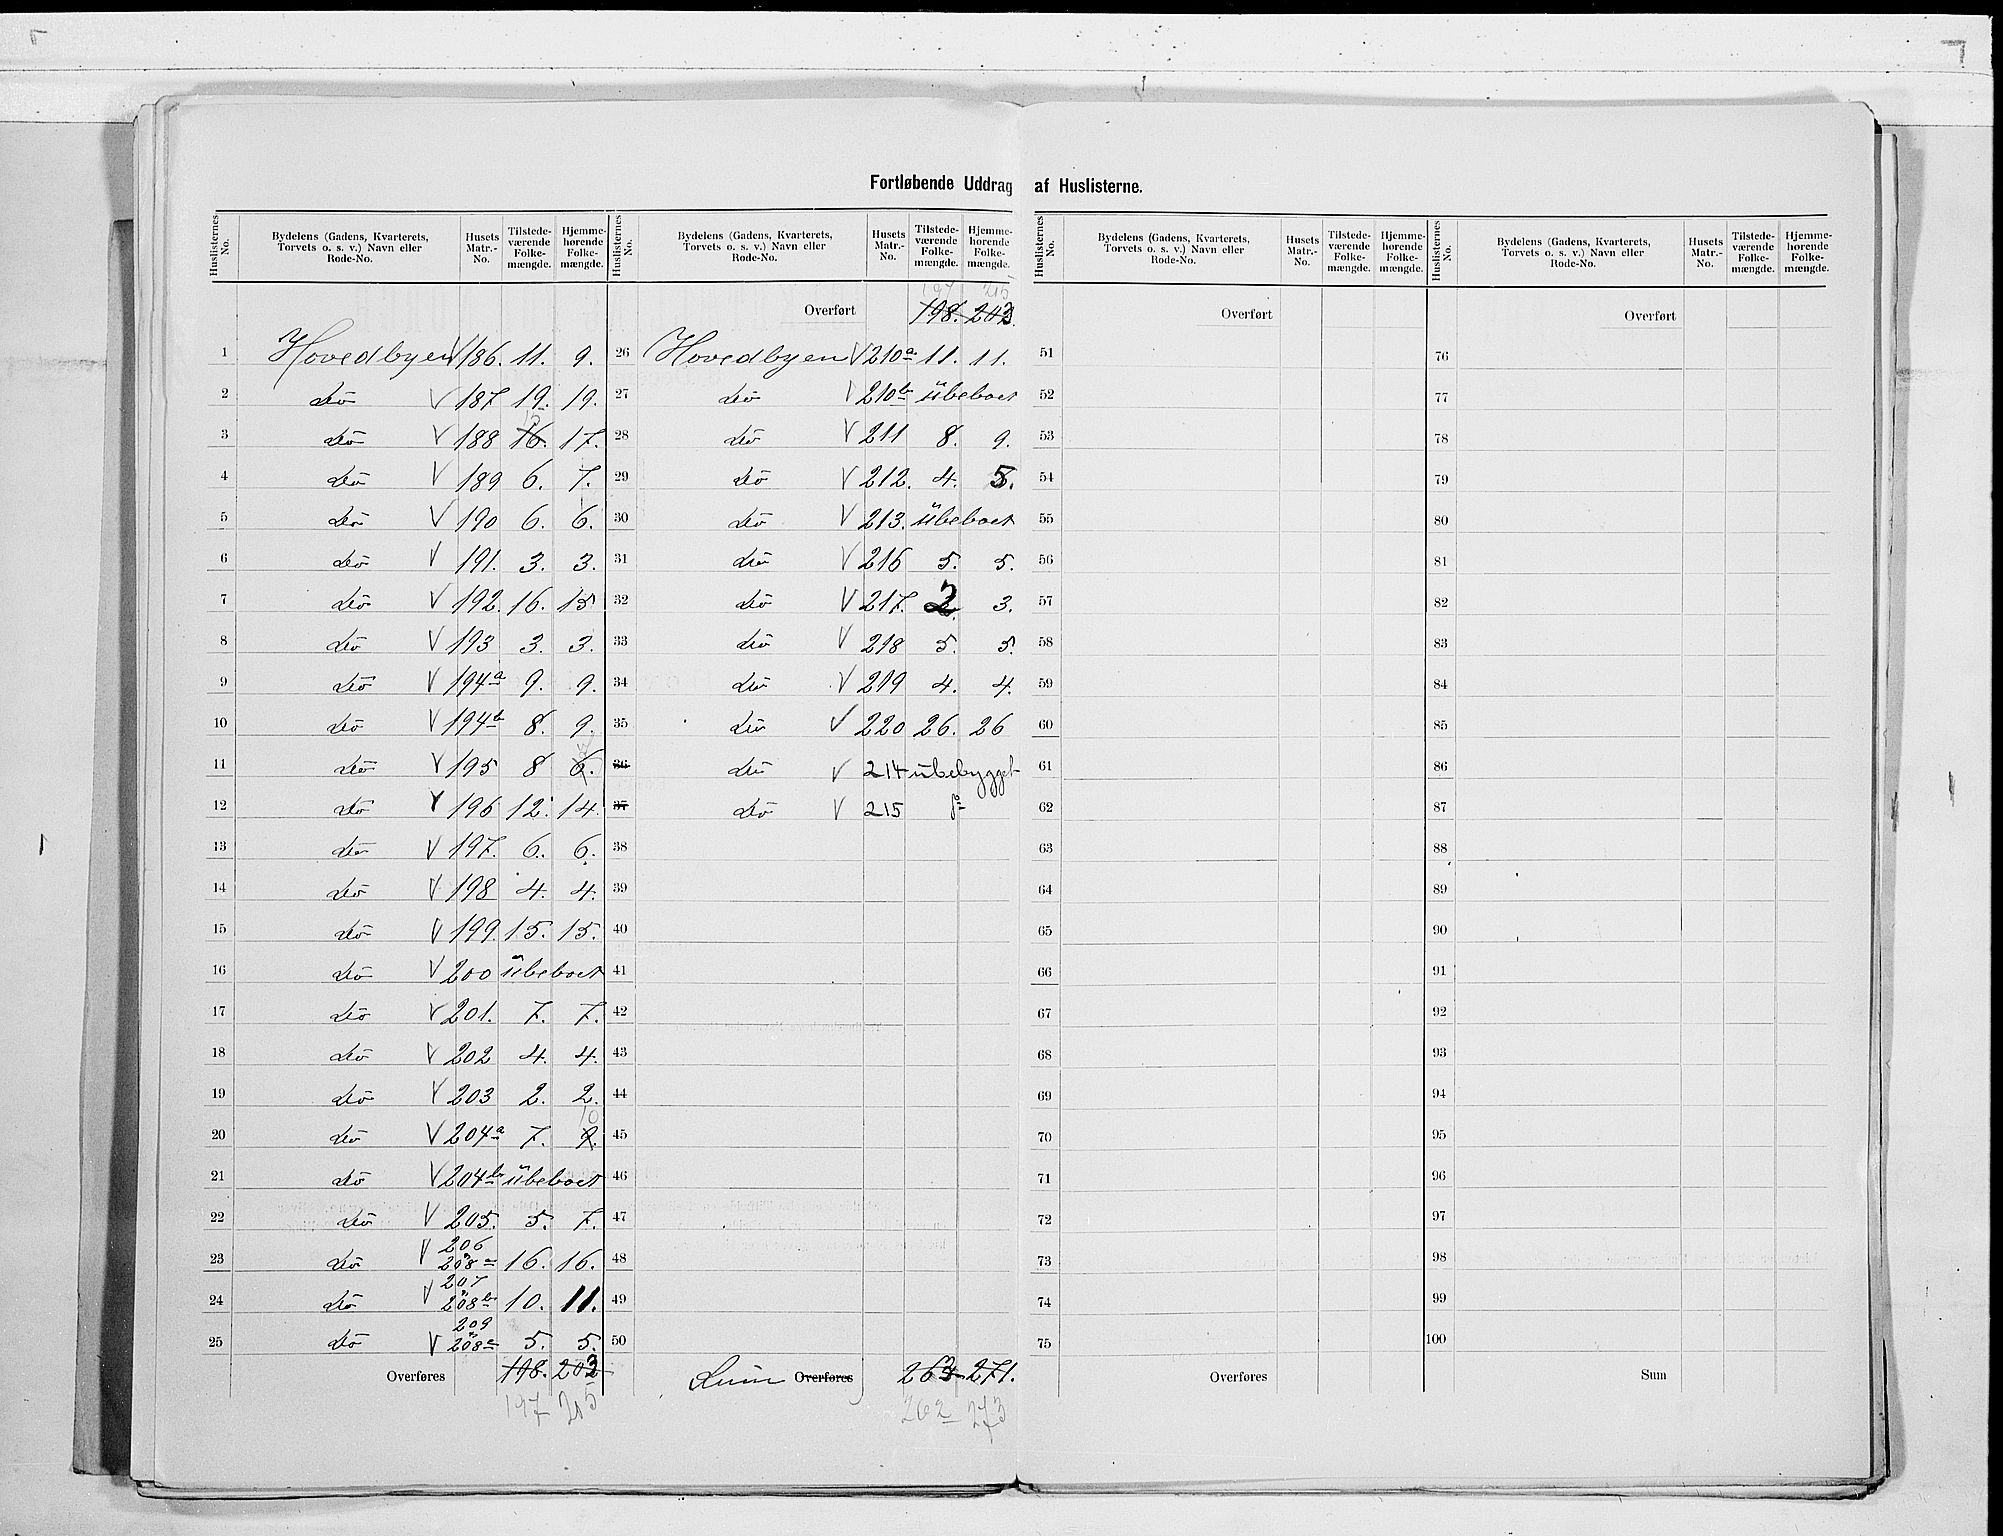 Fortløbende Uddrag af Huslisterne.
Huslisternes No. Bydelens (Gadens, Kvarterets, Torvets o. s. v.) Navn eller Rode-No. Husets Matr.-No. Tilstedeværende Folkemængde. Hjemmehørende Folkemængde.
1 Hovedbyen V 186. 11. 9.
2 do V 187 19. 19.
3 do V 188 16. 17.
4 do V 189 6. 7.
5 do V 190 6. 6.
6 do V 191. 3. 3.
7 do V 192. 16. 15
8 do V 193 3. 3.
9 do V 194a 9. 9.
10 do V 194b 8. 9.
11 do V 195 8 6.
12 do V 196 12. 14.
13 do V 197. 6. 6.
14 do V 198 4. 4.
15 do V 199. 15. 15.
16 do V 200 übeboet
17 do V 201. 7. 7.
18 do V 202 4. 4.
19 do V 203 2. 2.
10
20 do V 204a 7. 9.
21 do V 204b übeboet
22 do V 205. 5. 7.
23 do V 206 208a 16. 16.
24 do V 207 208b 10. 11.
25 do V 209 208c 5. 5.
Overføres 198. 203
197 205
Huslisternes No. Bydelens (Gadens, Kvarterets, Torvets o. s. v.) Navn eller Rode-No. Husets Matr.-No. Tilstedeværende Folkemængde. Hjemmehørende Folkemængde.
197 205
Overført 198. 203.
26 Hovedbyen V 210a 11. 11.
27 do V 210b übeboet
28 do V 211 8. 9.
29 do V 212. 4. 5.
30 do V 213. übeboet
31 do V 216 5. 5.
32 do V 217. 2 3.
33 do V 218 5. 5.
34 do V 219 4. 4.
35 do V 220 26. 26
36 do V 214 übebygget
37 do V 215 do
38
39
40
41
42
43
44
45
46
47
48
49
50
Sum Overføres 263 271.
262 273
Huslisternes No. Bydelens (Gadens, Kvarterets, Torvets o. s. v.) Navn eller Rode-No. Husets Matr.-No. Tilstedeværende Folkemængde. Hjemmehørende Folkemængde.
Overført
51
52
53
54
55
56
57
58
59
60
61
62
63
64
65
66
67
68
69
70
71
72
73
74
75
Overføres
Huslisternes No. Bydelens (Gadens, Kvarterets, Torvets o. s. v.) Navn eller Rode-No. Husets Matr.-No. Tilstedeværende Folkemængde. Hjemmehørende Folkemængde.
Overført
76
77
78
79
80
81
82
83
84
85
86
87
88
89
90
91
92
93
94
95
96
97
98
99
100
Sum